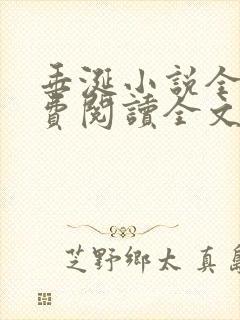 垂涎小説全
費閱讀全文
芝野鄉太真